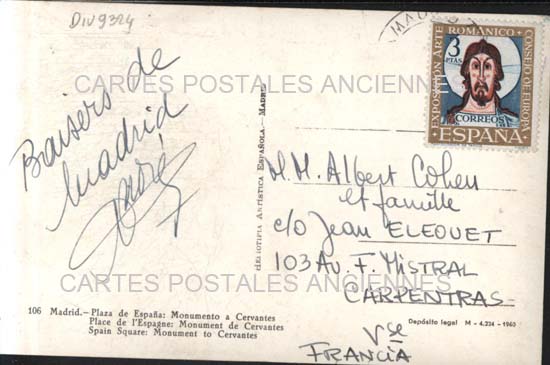 DIV9324
CARTES POSTALES ANCIENNES
Baisers de
Madrid
André
HELIOTIPIA ARTÍSTICA ESPAÑOLA.- MADRID
3
PTAS
EXPOSICION ARTE ROMANICO • CONSEJO DE EUROPA
CORREOS
ESPAÑA
M.M. Albert Cohen
et famille
c/o Jean ELEOUET
103 Av. F. MISTRAL
CARPENTRAS
Vse
FRANCIA
CARTES POSTALES ANCIENNES
106 Madrid.—Plaza de España: Monumento a Cervantes
Place de l'Espagne: Monument de Cervantes
Spain Square: Monument to Cervantes
Depósito legal M - 4.234 - 1960